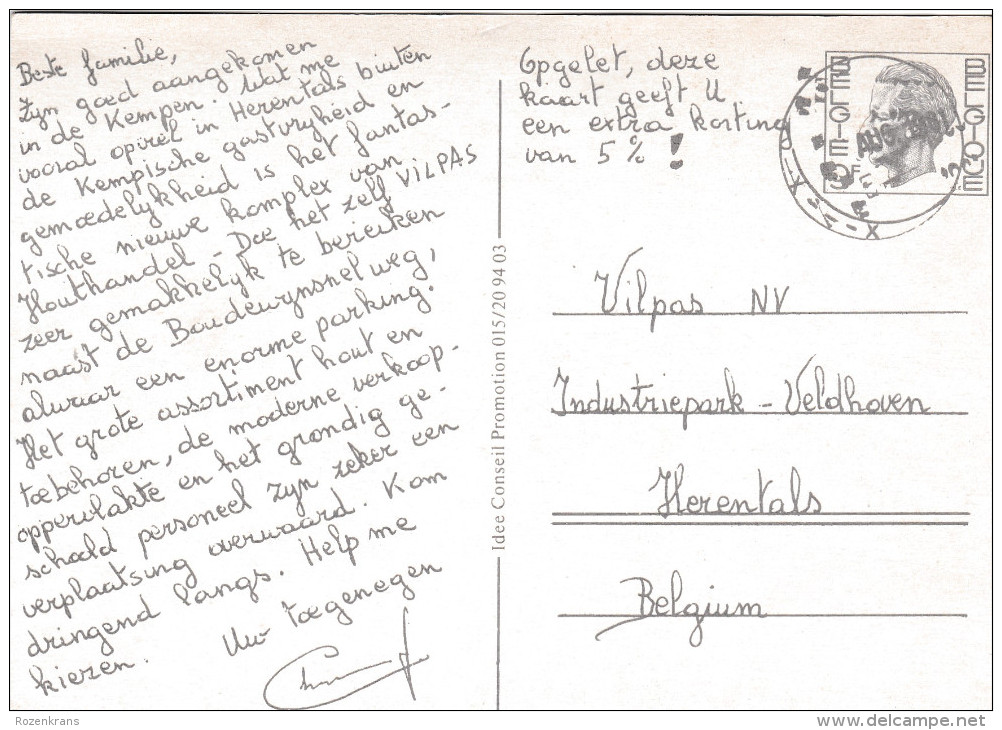 Beste familie,
Zijn goed aangekomen
in de Kempen. Wat me
vooral opviel in Herentals buiten
de Kempische gastvrijheid en
gemoedelijkheid is het fantas-
tische nieuwe komplex van
Houthandel - Doe het zelf VILPAS
zeer gemakkelijk te bereiken
naast de Boudewijnsnelweg,
alwaar een enorme parking.
Het grote assortiment hout en
toebehoren, de moderne verkoop-
oppervlakte en het grondig ge-
schoold personeel zijn zeker een
verplaatsing overwaard. Kom
dringend langs. Help me
kiezen.
Uw toegenegen
Idee Conseil Promotion 015/20 94 03
Opgelet, deze
kaart geeft U
een extra korting
van 5 % !
BELGIE
BELGIQUE
5F
Vilpas NV
Industriepark - Veldhoven
Herentals
Belgium
Rozenkrans
www.delcampe.net